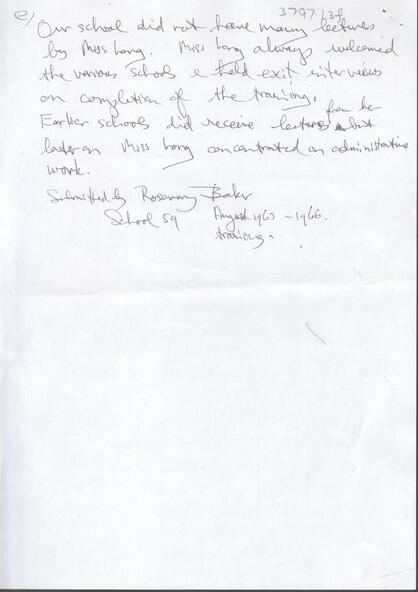 3797.138
e) Our school did not have many lectures
by Miss Long. Miss Long always welcomed
the various schools & held exit interviews
on completion of the training.
Earlier schools did receive lectures from her but
later on Miss Long concentrated on administrative
work.
Submitted by Rosemary Baker
School 59 August 1963 - 1966.
training.